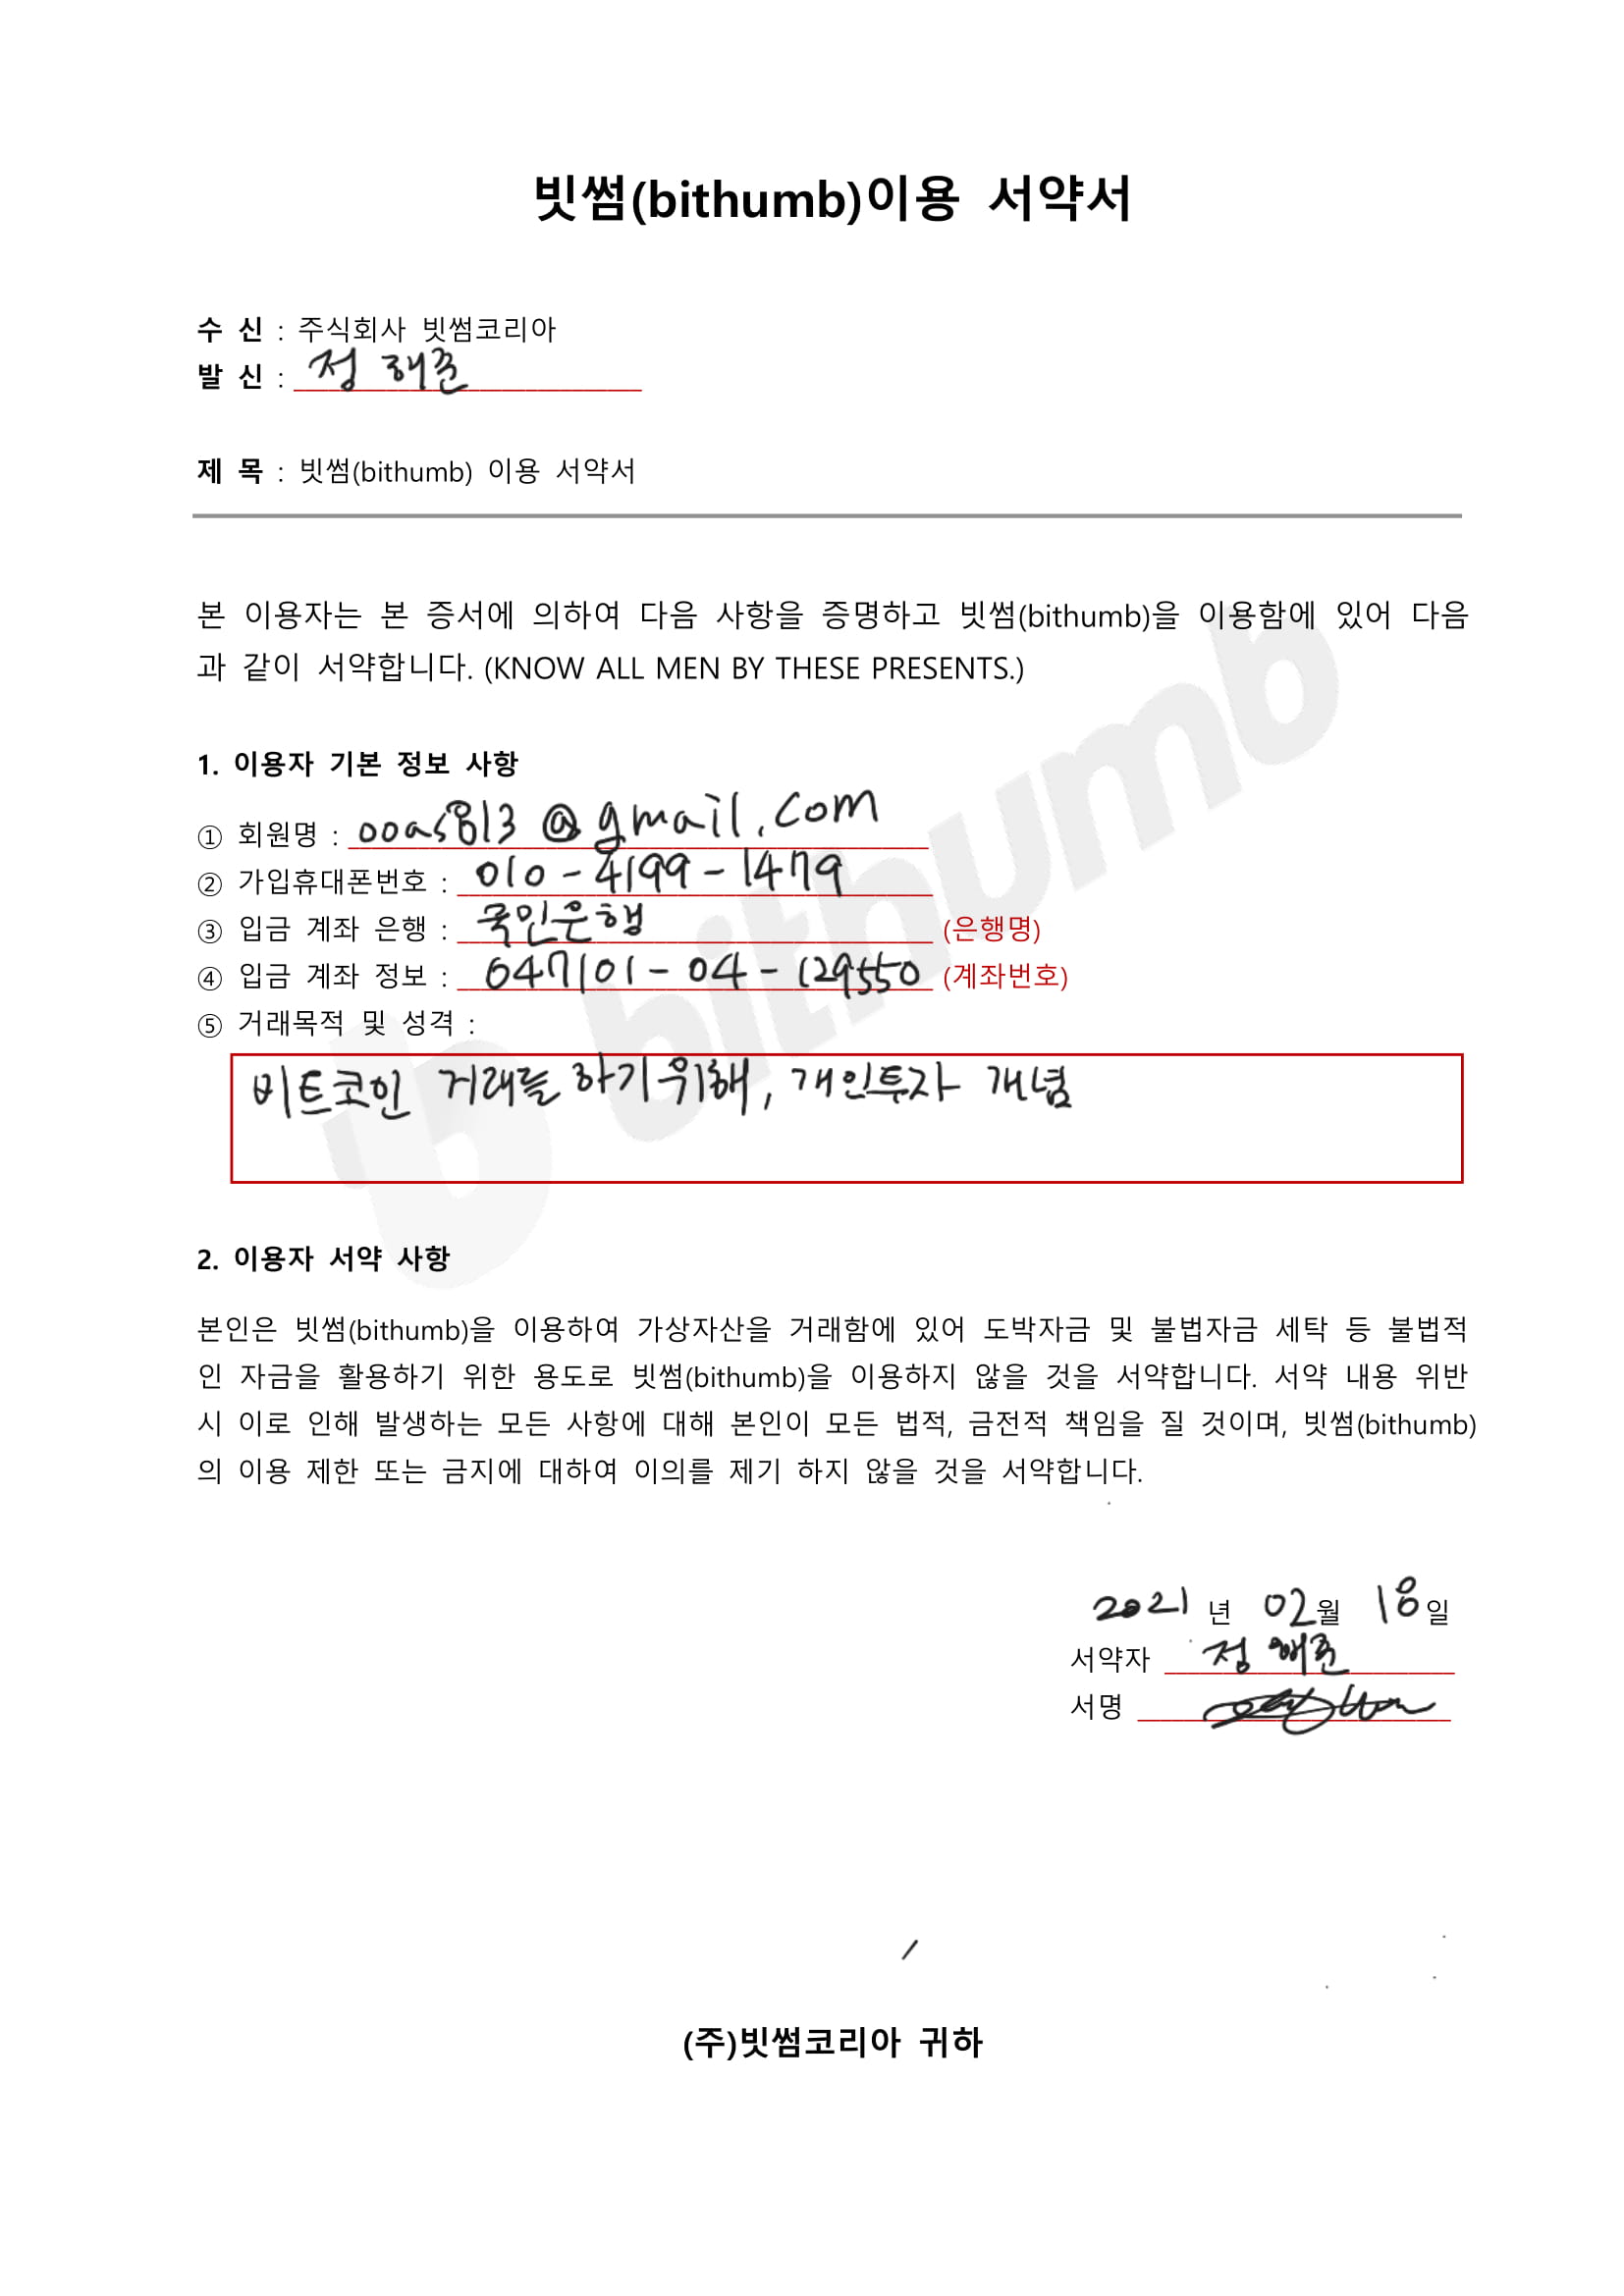 빗썸(bithumb)이용 서약서
수 신 : 주식회사 빗썸코리아
발 신 : 정 해준
제 목 : 빗썸(bithumb) 이용 서약서
본 이용자는 본 증서에 의하여 다음 사항을 증명하고 빗썸(bithumb)을 이용함에 있어 다음
과 같이 서약합니다. (KNOW ALL MEN BY THESE PRESENTS.)
1. 이용자 기본 정보 사항
① 회원명 : ooas813@gmail.com
② 가입휴대폰번호 : 010-4199-1479
③ 입금 계좌 은행 : 국민은행 (은행명)
④ 입금 계좌 정보 : 647101-04-129550 (계좌번호)
⑤ 거래목적 및 성격 :
비트코인 거래를 하기위해, 개인투자 개념
bithumb
2. 이용자 서약 사항
본인은 빗썸(bithumb)을 이용하여 가상자산을 거래함에 있어 도박자금 및 불법자금 세탁 등 불법적
인 자금을 활용하기 위한 용도로 빗썸(bithumb)을 이용하지 않을 것을 서약합니다. 서약 내용 위반
시 이로 인해 발생하는 모든 사항에 대해 본인이 모든 법적, 금전적 책임을 질 것이며, 빗썸(bithumb)
의 이용 제한 또는 금지에 대하여 이의를 제기 하지 않을 것을 서약합니다.
2021 년 02월 18일
서약자 정 해준
서명
(주)빗썸코리아 귀하